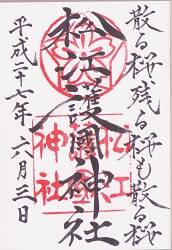 散る桜残る桜も散る桜
松江護國神社
平成二十七年 六月三日
松江
護國
神社